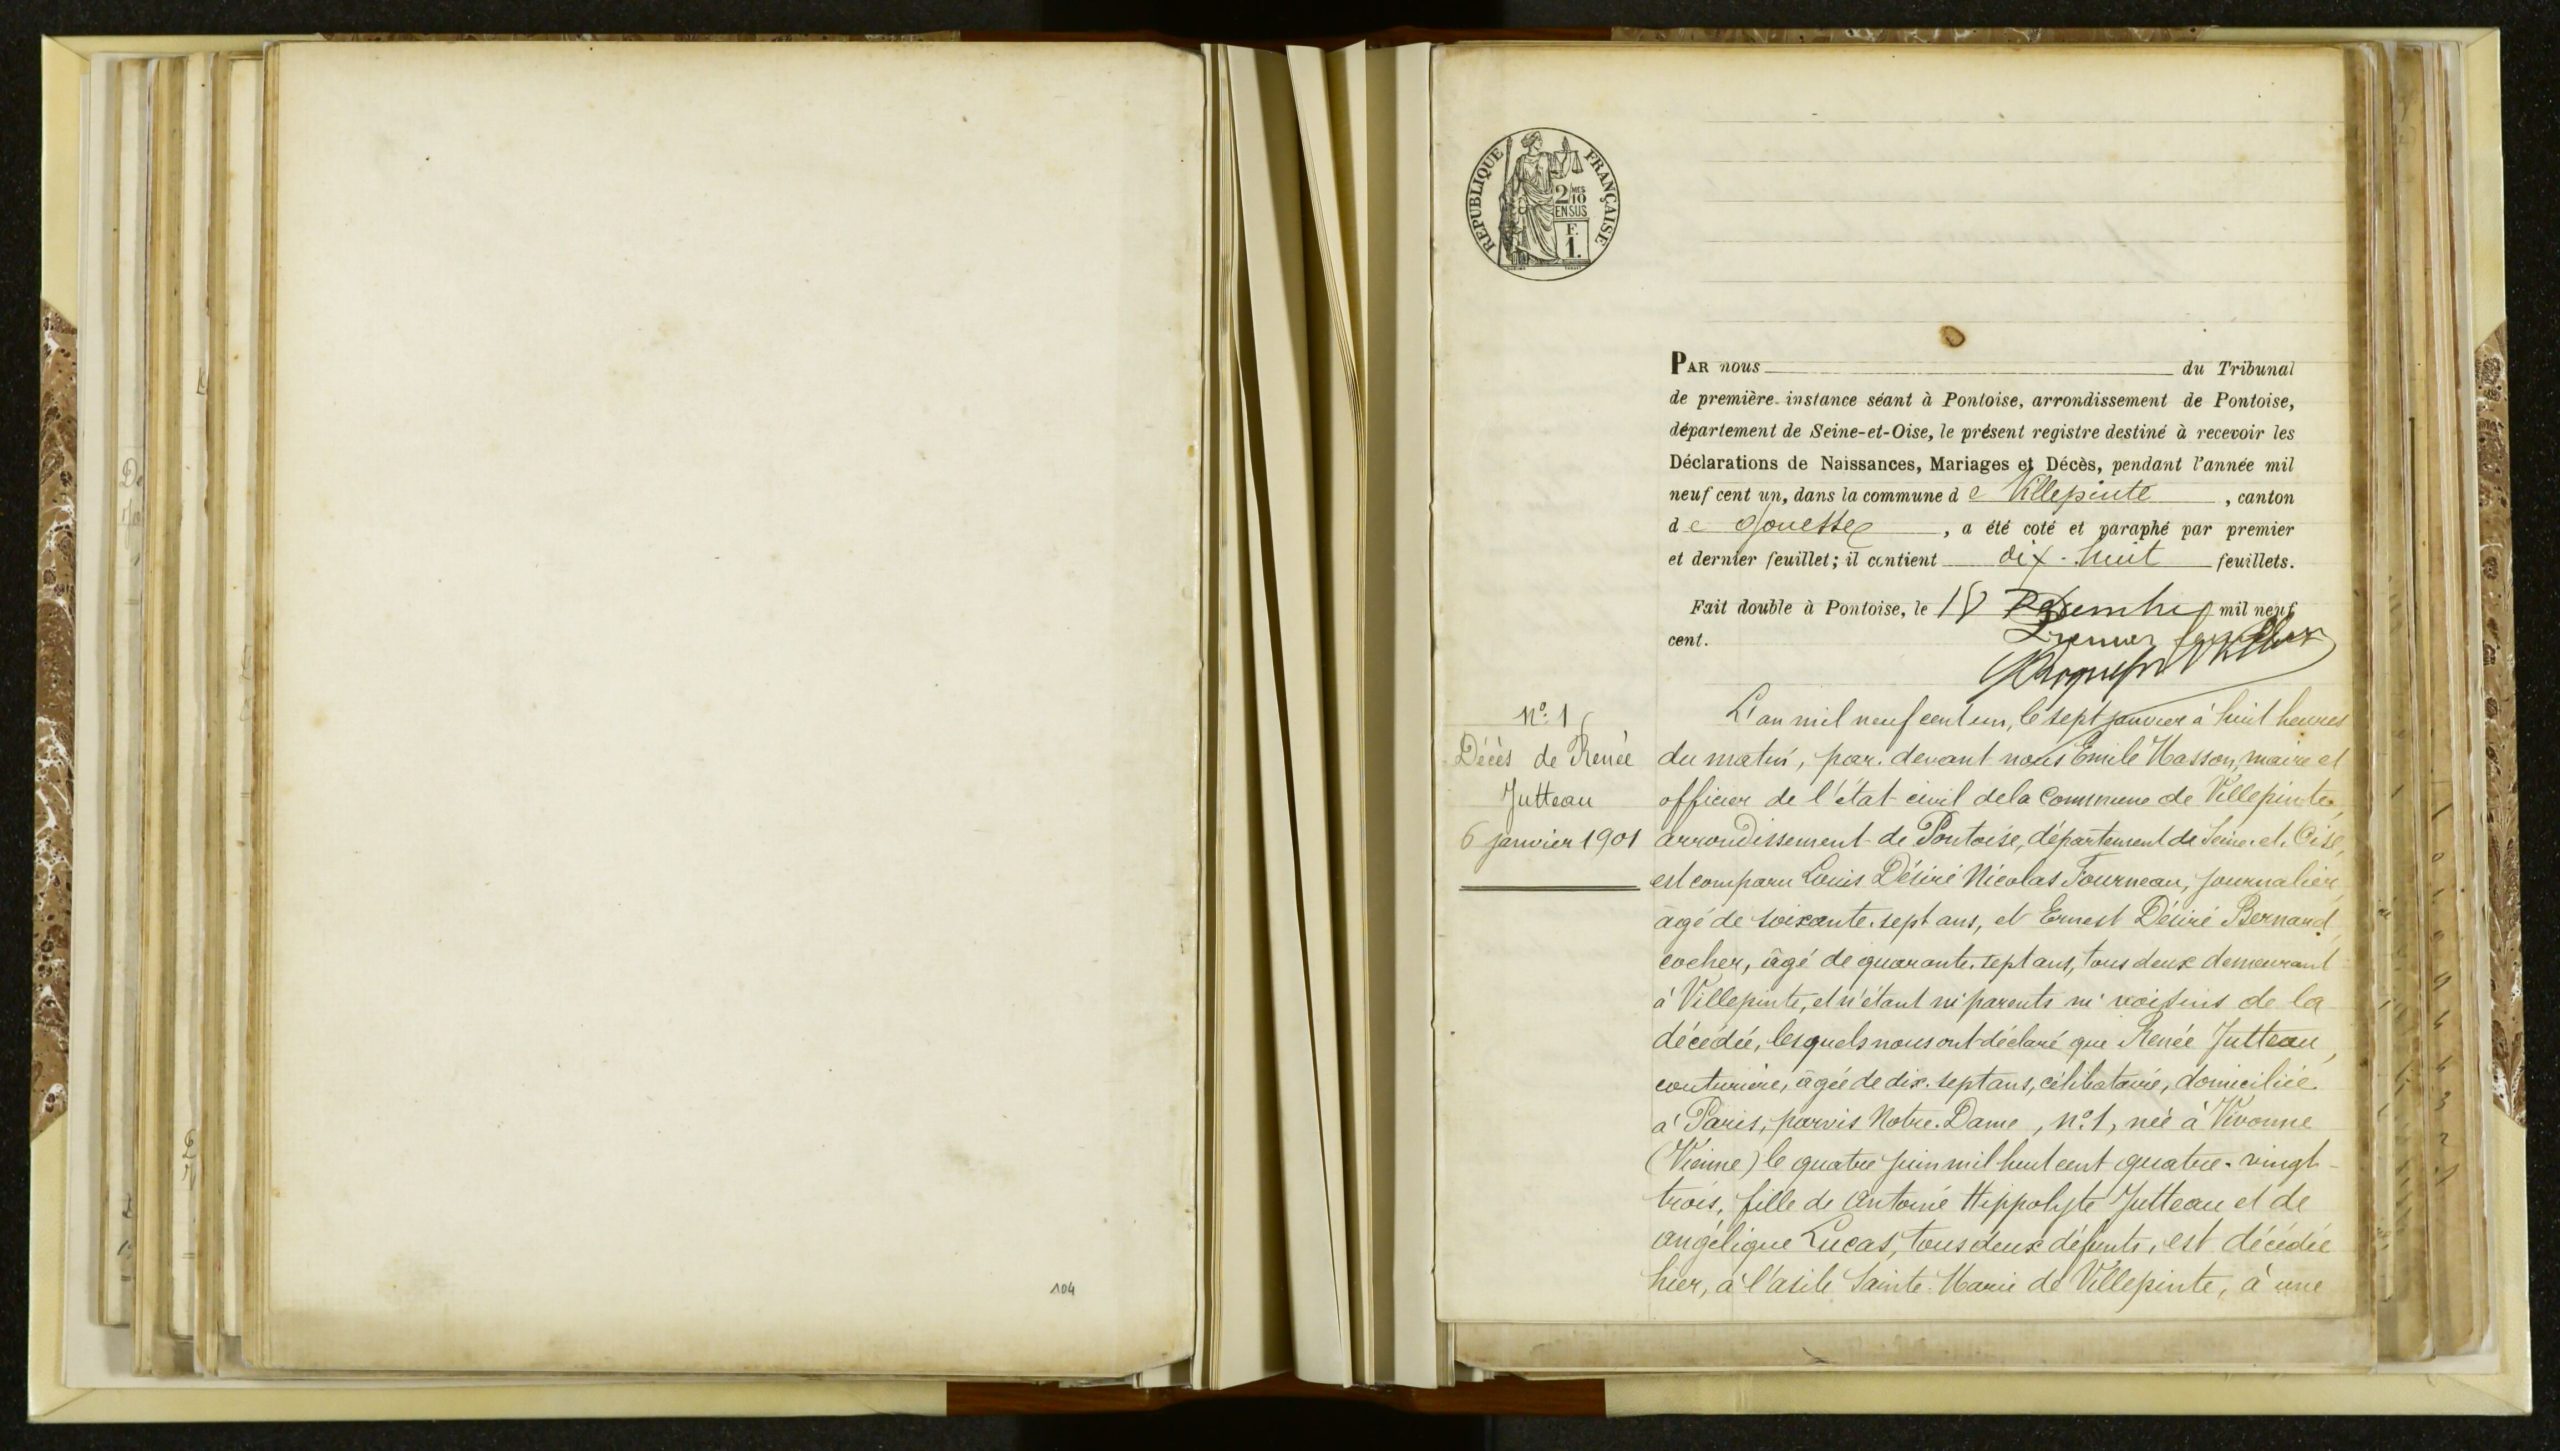 104
RÉPUBLIQUE FRANÇAISE
2/10 MES
EN SUS
F.
1.
PAR nous du Tribunal
de première instance séant à Pontoise, arrondissement de Pontoise,
département de Seine-et-Oise, le présent registre destiné à recevoir les
Déclarations de Naissances, Mariages et Décès, pendant l'année mil
neuf cent un, dans la commune de Villepinte, canton
de Gonesse, a été coté et paraphé par premier
et dernier feuillet; il contient dix-huit feuillets.
Fait double à Pontoise, le 18 Décembre mil neuf
cent.
Premier feuillet
N° 1
Décès de Renée
Jutteau
6 janvier 1901
L'an mil neuf cent un, le sept janvier à huit heures
du matin, par devant nous Emile Masson, maire et
officier de l'état civil de la Commune de Villepinte,
arrondissement de Pontoise, département de Seine-et-Oise,
est comparu Louis Désiré Nicolas Fourneau, journalier,
âgé de soixante-sept ans, et Ernest Désiré Bernard,
cocher, âgé de quarante-sept ans, tous deux demeurant
à Villepinte, et n'étant ni parents ni voisins de la
décédée, lesquels nous ont déclaré que Renée Jutteau,
couturière, âgée de dix-sept ans, célibataire, domiciliée
à Paris, parvis Notre-Dame, n° 1, née à Vivonne
(Vienne) le quatre juin mil huit cent quatre-vingt-
trois, fille de Antoine Hippolyte Jutteau et de
Angélique Lucas, tous deux défunts, est décédée
hier, à l'asile Sainte-Marie de Villepinte, à une